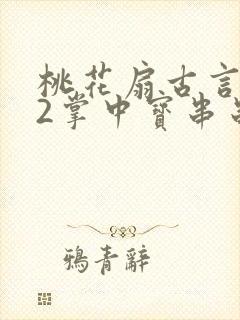 桃花扇古言
2掌中寳串
鴉青辭